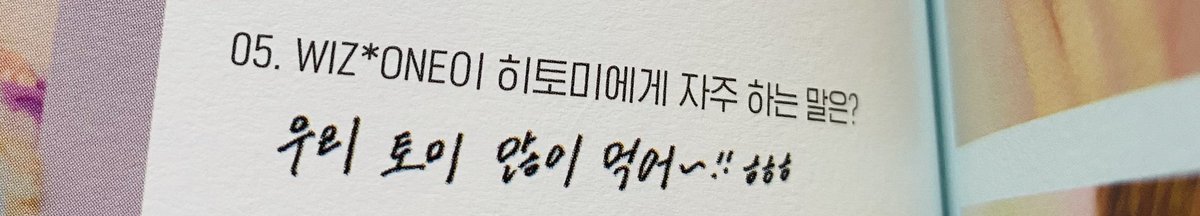 05. WIZ*ONE이 히토미에게 자주 하는 말은?
우리 토미 많이 먹어~!! ㅎㅎㅎ